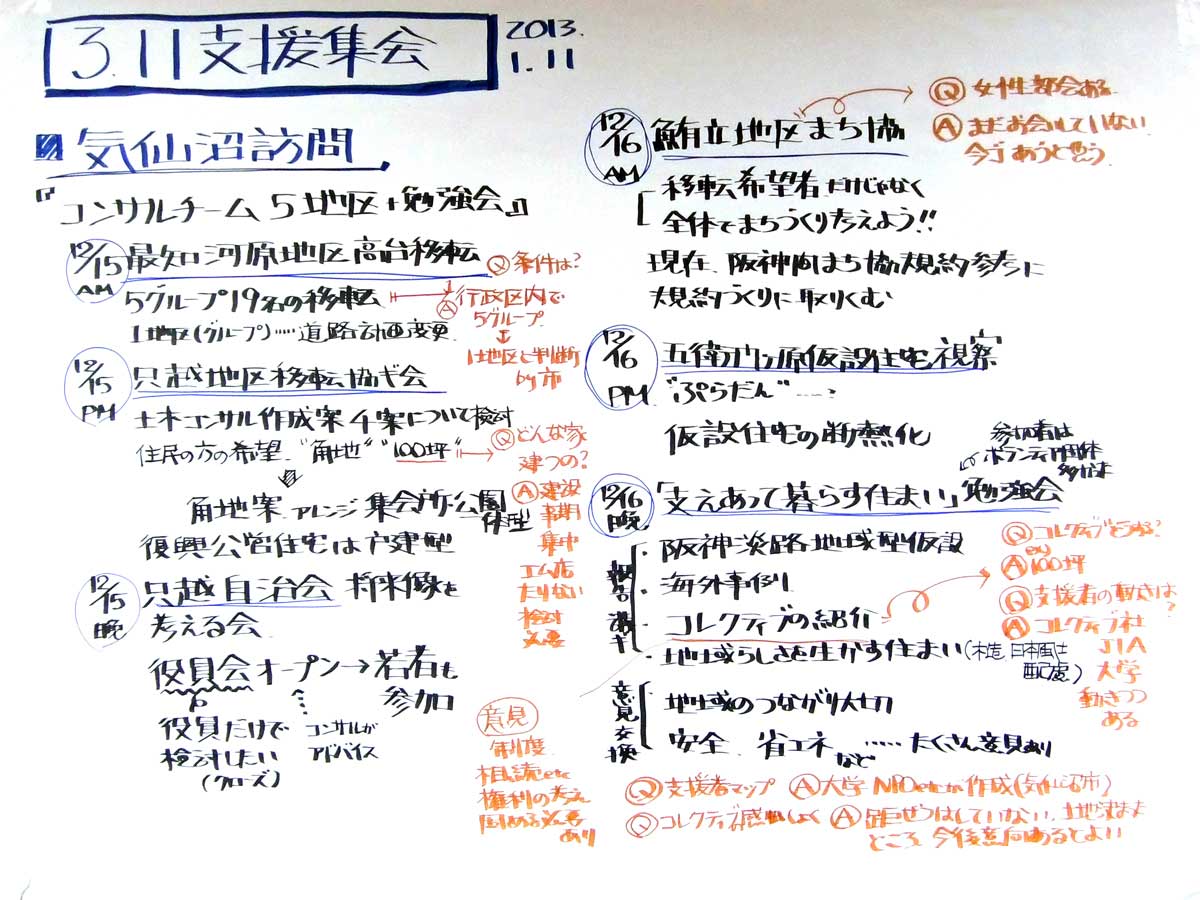 3.11支援集会
2013.
1.11
気仙沼訪問
『コンサルチーム 5地区+勉強会』
12/15
AM
最知河原地区高台移転
5グループ19名の移転
1地区(グループ)……道路計画変更
Q 条件は?
A 行政区内で
5グループ
↓
1地区と判断
by市
12/15
PM
只越地区移転協ギ会
土木コンサル作成案 4案について検討
住民の方の希望 "角地" "100坪"
角地案 アレンジ 集会所・公園
一体型
復興公営住宅は戸建型
Q どんな家
建つの?
A 建設
時期
集中
工ム店
たりない
検討
必要
12/15
晩
只越自治会 将来像を
考える会
役員会オープン→若者も
参加
役員だけで
検討したい
(クローズ)
コンサルが
アドバイス
意見
制度
相続etc
権利の考え
固める必要
あり
12/16
AM
鮪立地区まち協
移転希望者だけじゃなく
全体でまちづくり考えよう!!
現在、阪神間まち協規約参考に
規約づくりに取りくむ
Q 女性部会ある
A まだお会いしていない
今ごあうと思う
12/16
PM
五右衛門ヶ原仮設住宅視察
"ぷらだん"……
仮設住宅の断熱化
12/16
晩
「支えあって暮らす住まい」勉強会
参加者は
ボランティア団体
・阪神淡路地域型仮設
・海外事例
・コレクティブの紹介
・地域らしさを生かす住まい(木造、日本風は
配慮)
意見交換
地域のつながり大切
安全、省エネなど……たくさん意見あり
A 100坪
Q 支援者の動きは?
A コレクティブ社
JIA
大学
動きつつ
ある
Q 支援者マップ A 大学 NPOetcが作成(気仙沼市)
Q コレクティブ感しょく A 拒ぜつはしていない、土地決まま
どころ 今後意向あるとよい